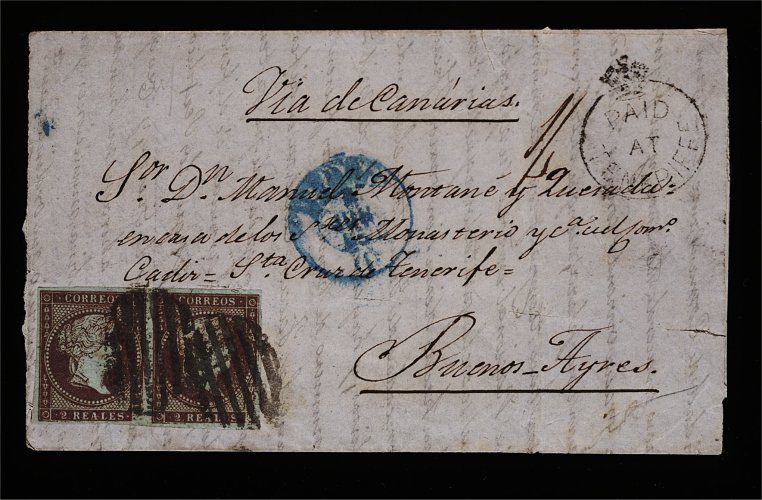 Via de Canárias.
PAID
AT
TENERIFFE
Sor. Dn. Manuel Montané y
en casa de los Monasterio y Ca. del Com.o
Cadiz = Sta. Cruz de Tenerife =
Buenos-Ayres.
CORREOS CORREOS
2 REALES 2 REALES